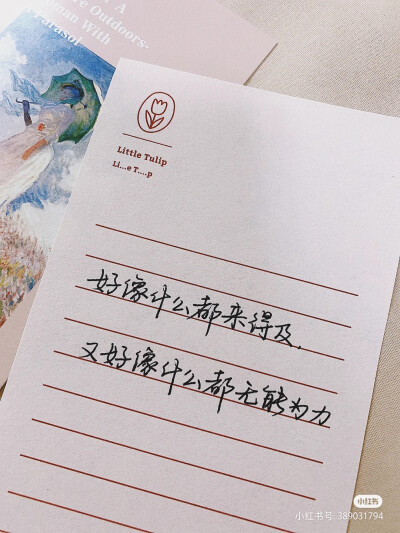 A
Outdoors-
With
Parasol
Little Tulip
Li...e T....p
好像什么都来得及.
又好像什么都无能为力
小红书
小红书号:389031794